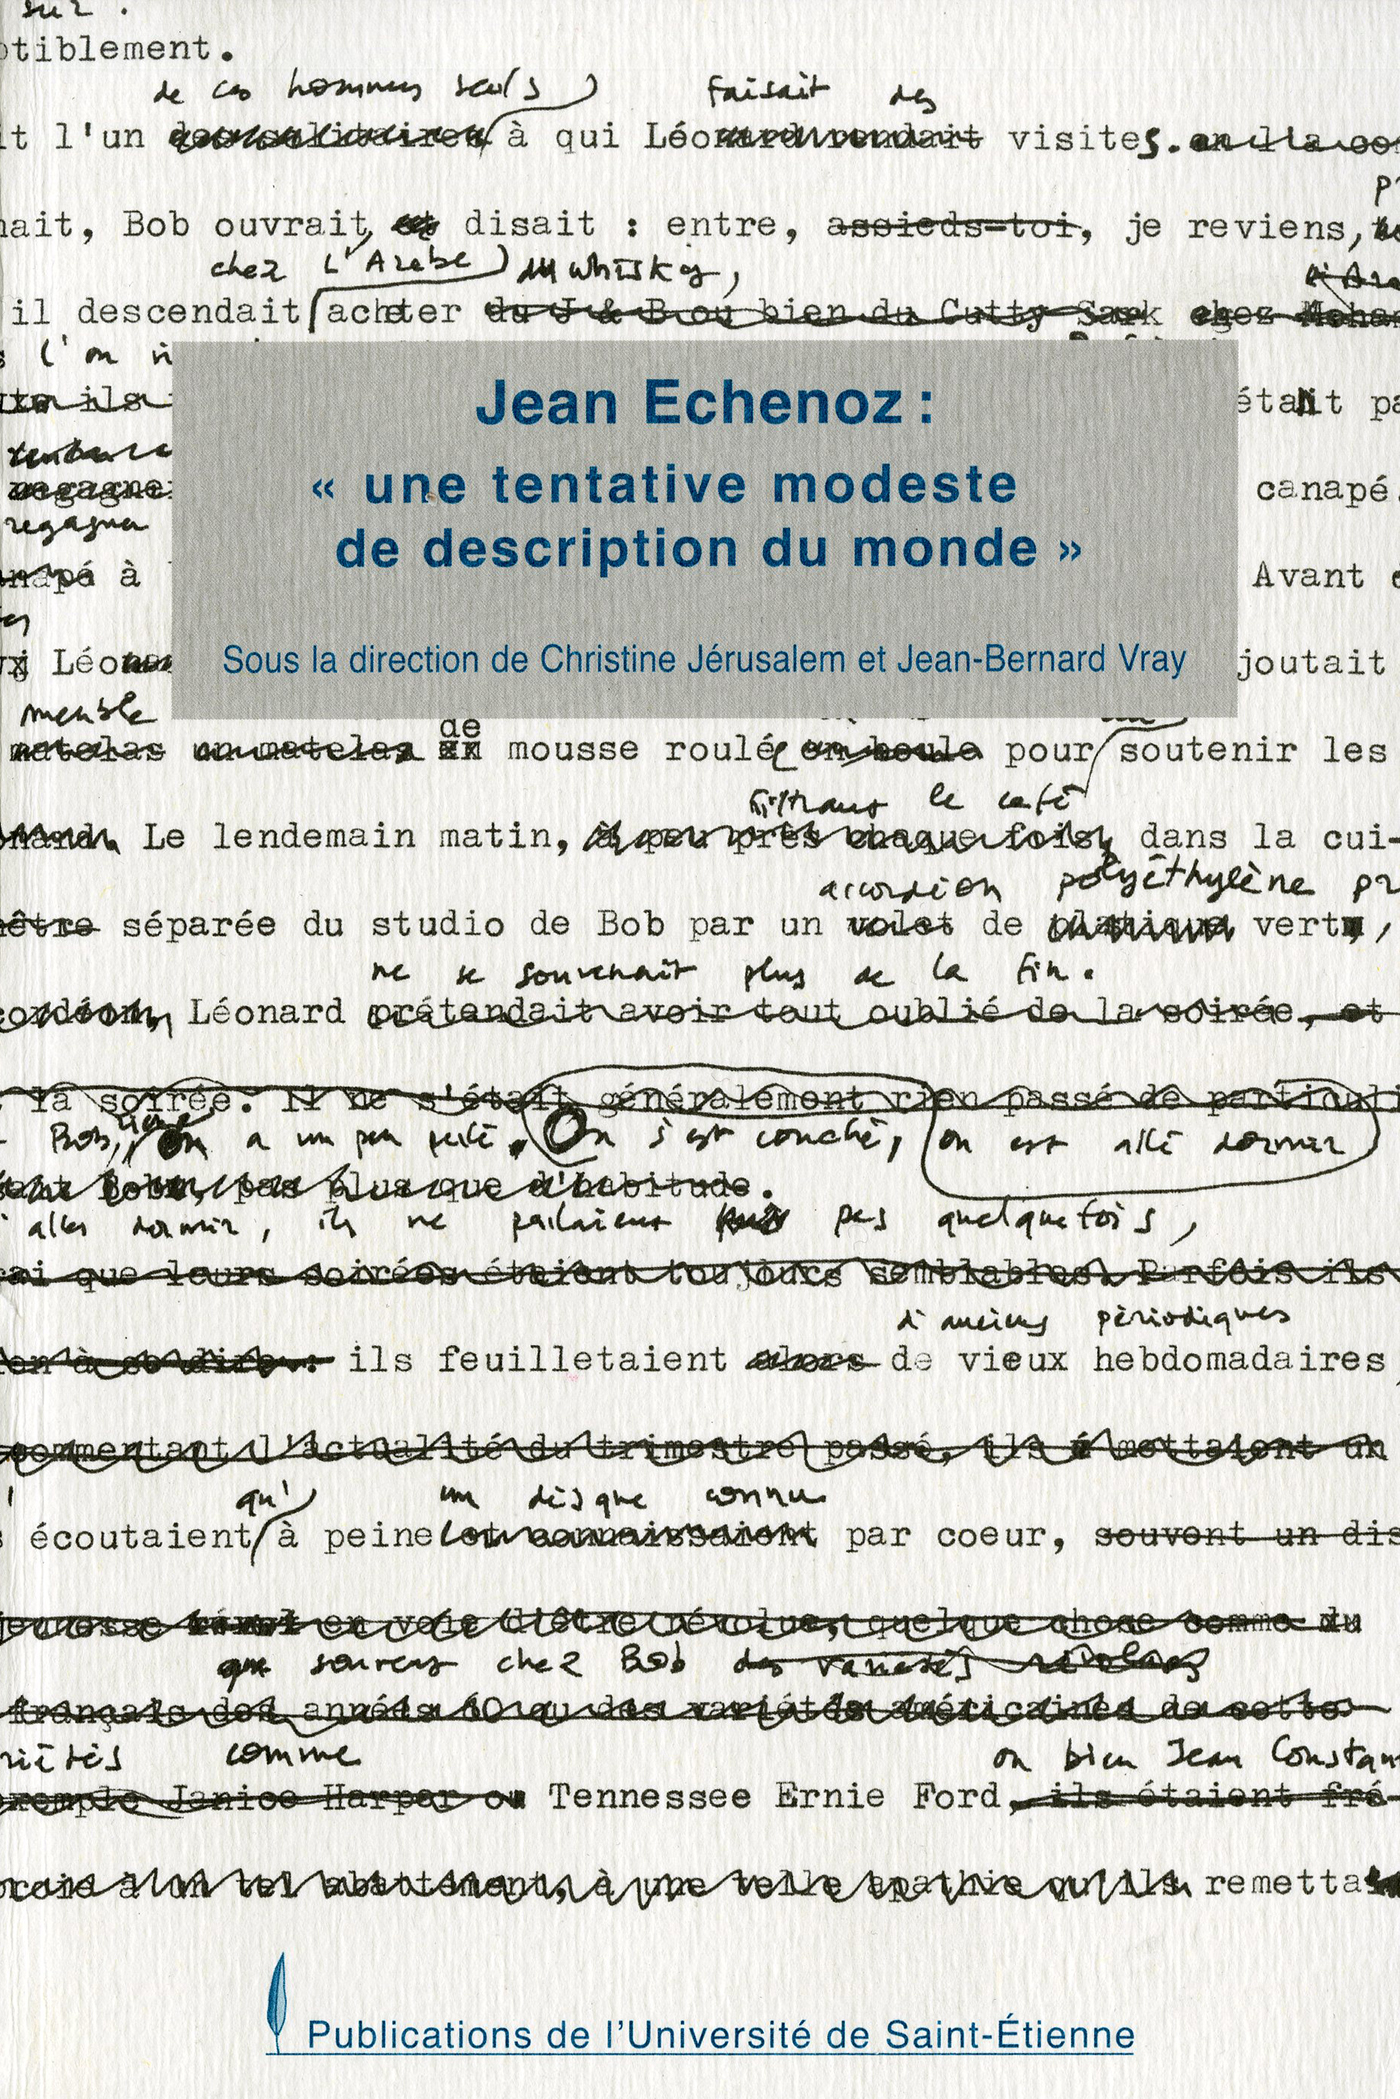 sur.
otiblement.
de ces hommes seuls faisait des
it l'un à qui Léonard rendait visites. en
nait, Bob ouvrait, et disait : entre, assieds-toi, je reviens,
chez L'Arabe du whisky,
il descendait acheter du J & B ou bien du Cutty Sark chez
l'on
ils était pa
canapé.
regagner
napé à Avant e
Léo joutait
meuble
de
matelas un matelas en mousse roulé en boule pour soutenir les
filtrant le café
Le lendemain matin, à peu près chaque fois, dans la cui-
accordéon polyéthylène pr
nêtre séparée du studio de Bob par un volet de plastique vert,
ne se souvenait plus de la fin.
cordéon, Léonard prétendait avoir tout oublié de la soirée, et
la soirée. Il ne s'était généralement rien passé de particuli
Bob, on a un peu parlé. On s'est couché, on est allé dormir
Bob, pas plus que d'habitude.
aller dormir, ils ne parlaient pas quelquefois,
rai que leurs soirées étaient toujours semblables. Parfois ils
d'anciens périodiques
en à se dire : ils feuilletaient alors de vieux hebdomadaires,
commentant l'actualité du trimestre passé, ils mettaient un
qu' un disque connu
s écoutaient à peine et connaissaient par coeur, souvent un dis
jeunesse en voie d'être révolue, quelque chose comme du
que souvent chez Bob des variétés
français des années 60 ou des variétés américaines de cette
riétés comme ou bien Jean Constan
exemple Janice Harper ou Tennessee Ernie Ford, ils étaient fré-
à un tel abattement, à une telle apathie qu'ils remetta
Jean Echenoz :
« une tentative modeste
de description du monde »
Sous la direction de Christine Jérusalem et Jean-Bernard Vray
Publications de l'Université de Saint-Étienne